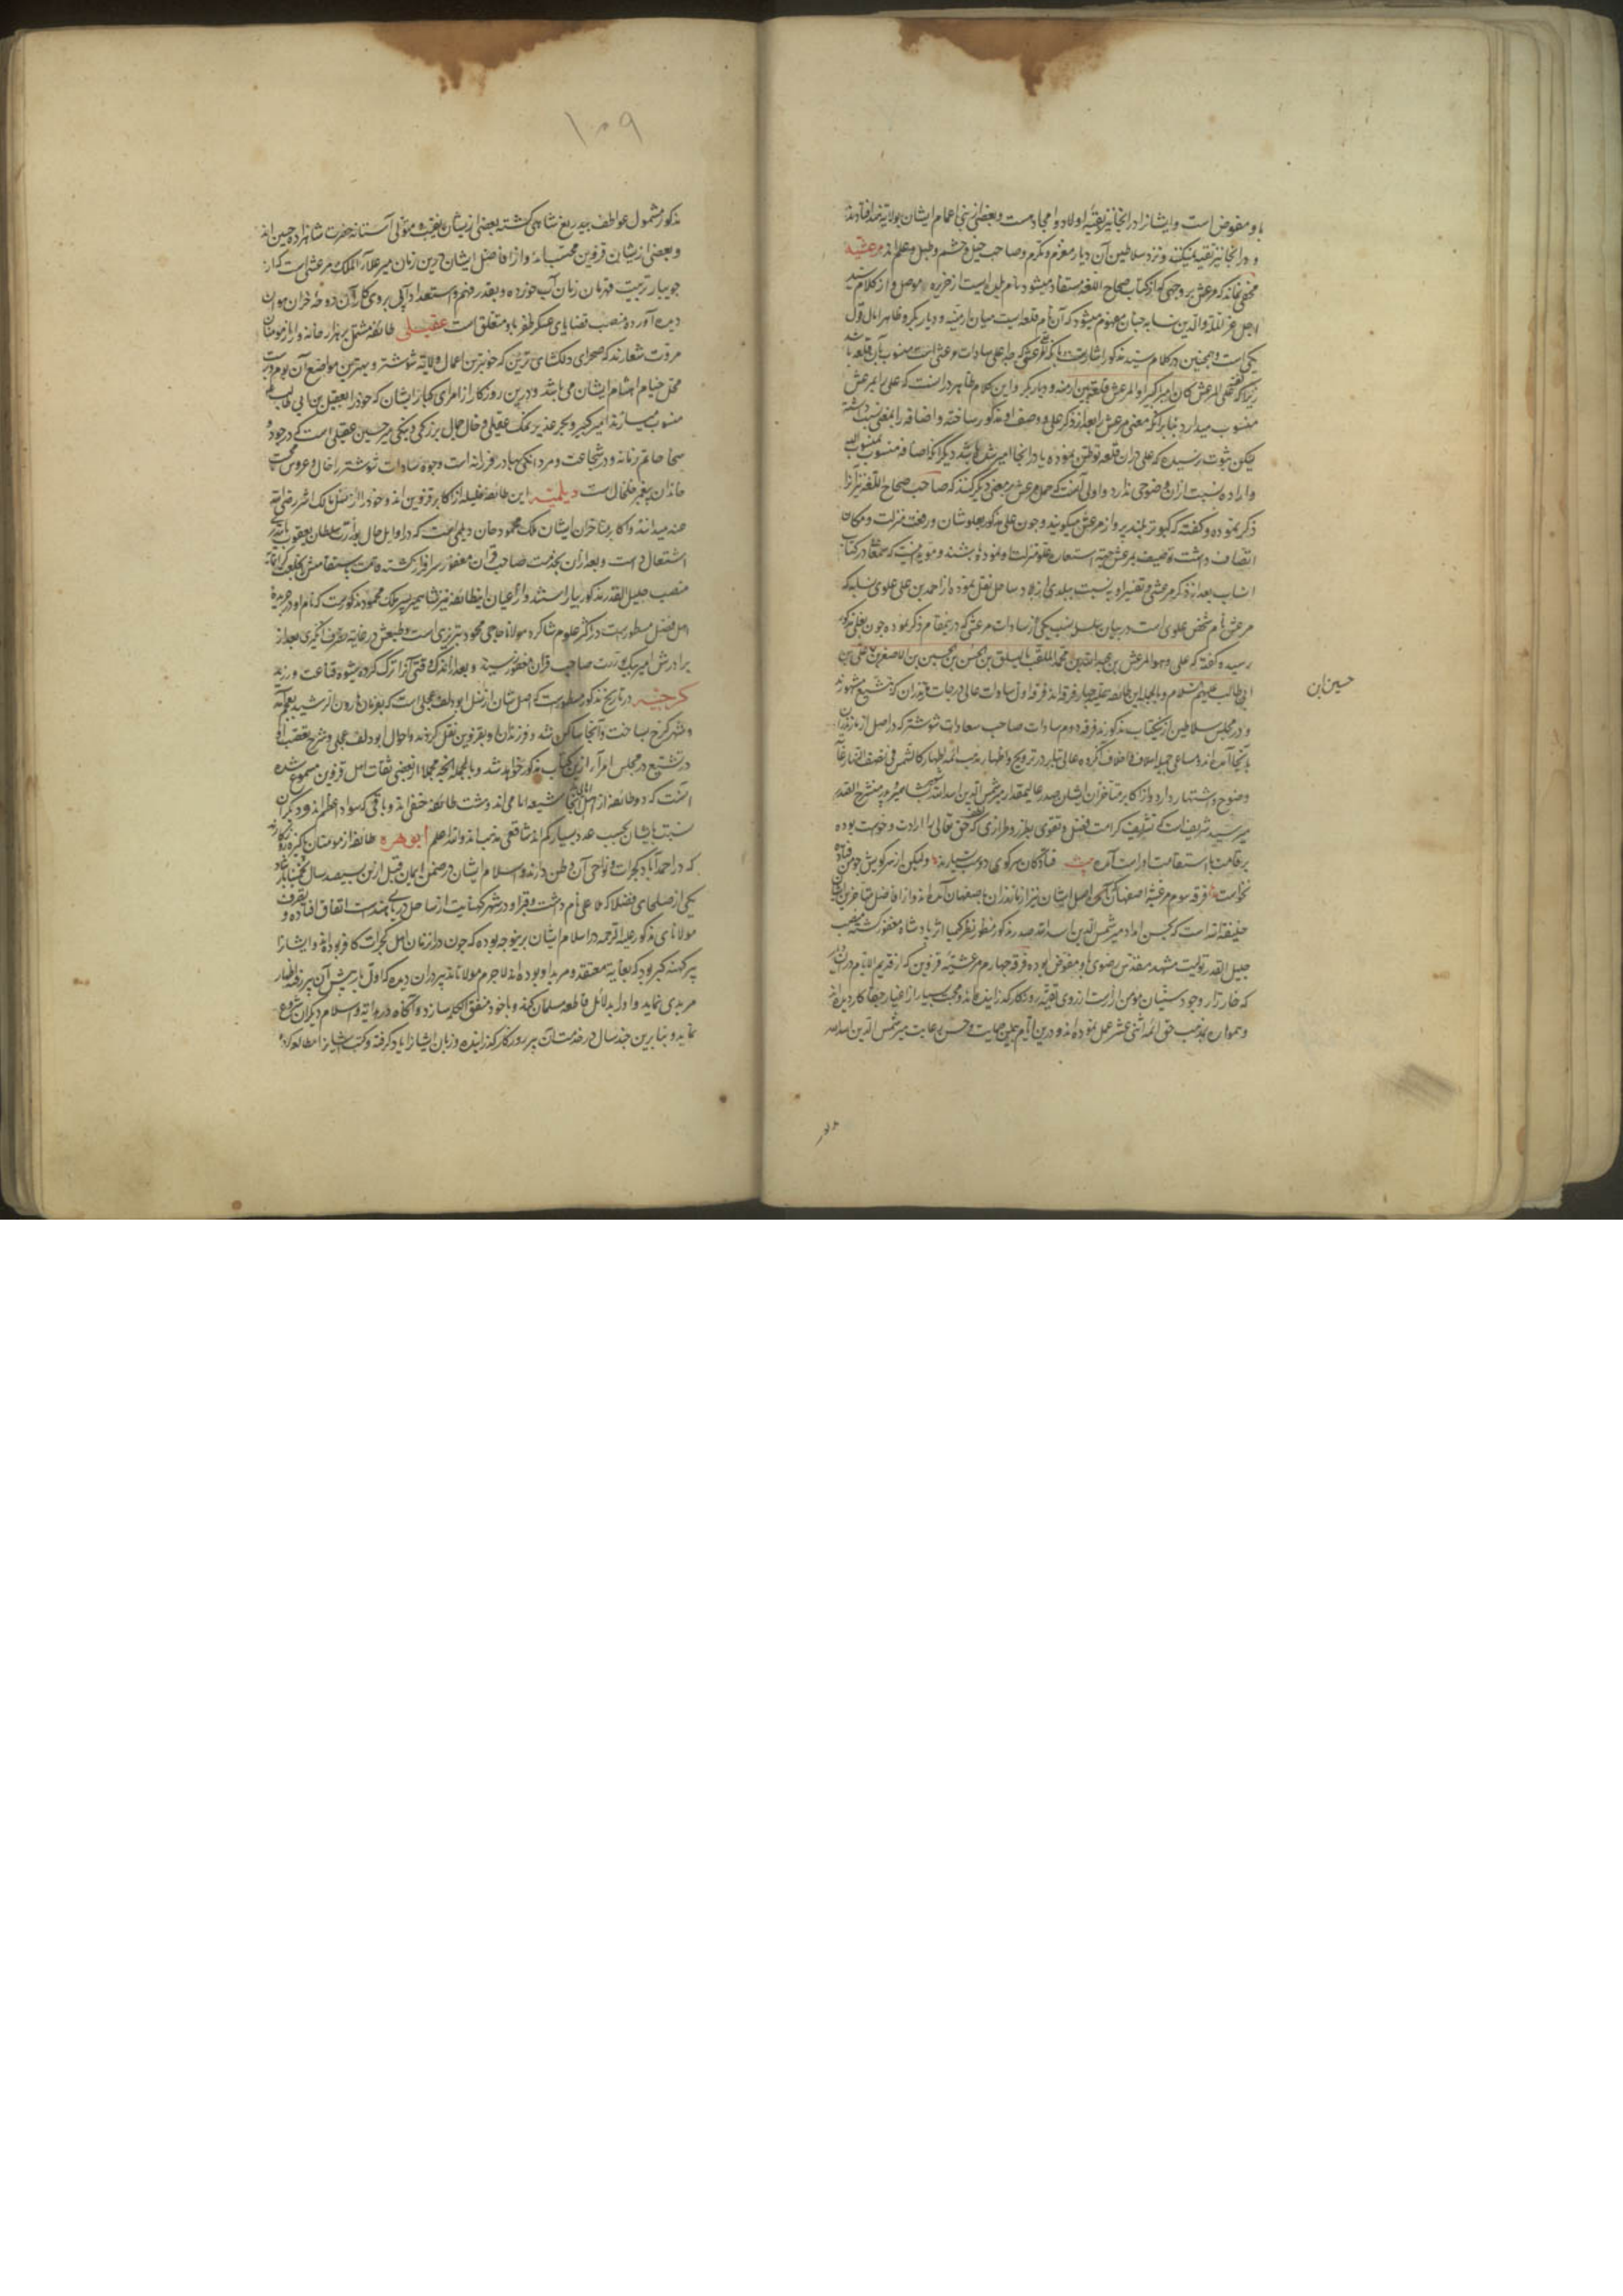 با و مفوض است و ایشانرا در انجا نیز بقیهٔ اولاد و امجاد هست و بعضی از بنی اعمام ایشان بولایة
و در انجا نیز تقیه نمیکنند و نزد سلاطین آن دیار معزز و مکرم و صاحب خیل و حشم و طبل و علم اند مرعشیه
مخفی نماند که مرعش بر وجهی که از کتاب صحاح اللغه مستفاد میشود نام بلدی است از جزیره موصل و از کلام سید
اجل عز الملة و الدین نسابه چنان مفهوم میشود که آن نام قلعه ایست میان ارمنیه و دیار بکر و ظاهرا مآل قول
یکی است و همچنین در کلام سید مذکور اشارتست بانکه
زیرا که گفته علی المرعش کان امیرا کبیرا و المرعش قلعة بین ارمنیه و دیار بکر و این کلام ظاهر در انست که علی را بمرعش
منسوب میدارد بنا بر آنکه معنی مرعش را بعد از ذکر علی و وصف او مذکور ساخته و اضافه را بمعنی نسبت داشته
لیکن بثبوت نرسیده که علی در ان قلعه توطن نموده یا در انجا امیر شده باشد دیگر آنکه اضافه منسوب بمنسوب الیه
و اراده نسبت ازان وضوحی ندارد و اولی آنست که حمل مرعش بر معنی دیگر کنند که صاحب صحاح اللغه نیز آنرا
ذکر نموده و گفته که کبوتر بلند پرواز را مرعش میگویند و چون علی مذکور بعلو شان و رفعت منزلت و مکان
اتصاف داشت توصیف بمرعش جهة استعاره علو منزلت او نموده باشند و مؤید اینست که سمعانی در کتاب
انساب بعد از ذکر مرعشی و تفسیر او به نسبت ببلدی از بلاد ساحل نقل نموده از احمد بن علی علوی نسابه که
مرعش نام شخص علوی است در بیان سلسله نسب یکی از سادات مرعشی که در ینمقام ذکر نموده چون بعلی مذکور
رسیده گفته که علی و هو المرعش بن عبدالله بن محمد الملقب بالسیلق بن الحسن بن الحسین بن الاصغر بن علی بن
حسین بن
ابی طالب علیهم السلام و بالجمله این طائفه علیه چهار فرقه اند فرقه اول سادات عالی درجات مازندران که بتشیع مشهورند
و در مجلس سلاطین از ینکتاب مذکورند فرقه دوم سادات صاحب سعادات شوشتر که در اصل از مازندران
بآنجا آمده اند و مساعی جمیله اسلاف و اخلاف آنگروه عالی تبار در ترویج و اظهار مذهب ائمه اطهار کالشمس فی نصف النهار غایت
وضوح و اشتهار دارد و از اکابر متاخران ایشان صدر عالیمقدار میر شمس الدین اسدالله
میر سید شریف است که تشریف کرامت فضل و تقوی بطرز و طرازی که حق تعالی را ارادت و خواست بوده
بر قامت با استقامت او راست آمده بیت فتادگان سر کوی دوست بسیارند ولیکن از سر کویش چو من فتاده
نخواست فرقه سوم مرعشیهٔ اصفهان که اصل ایشان نیز از مازندران باصفهان آمده اند و از افاضل متاخرین ایشان
خلیفه اسدالله است که بحسن امداد میر شمس الدین اسدالله صدر مذکور منظور نظر کیمیا اثر پادشاه مغفور گشته منصب
جلیل القدر تولیت مشهد مقدس رضوی باو مفوض بوده فرقه چهارم مرعشیهٔ قزوین که از قدیم الایام در ان
که خار زار وجود سنیان بوده از روی تقیه روزگار گذرانیده اند و محنت بسیار از اغیار جفا کار دیده اند
و همواره بمذهب حق ائمه اثنی عشر عمل نموده اند و درین ایام بیمن حمایت و حسن رعایت میر شمس الدین اسدالله
۱۰۹
مذکور مشمول عواطف بیدریغ شاهی گشته بعضی از ایشان بنقیب و متولی آستانه حضرت شاهزاده حسین اند
و بعضی از ایشان در قزوین محتسب اند و از افاضل ایشان درین زمان میر علاء الملک مرعشی است که از
جویبار تربیت قهرمان زمان آب خورده و بقدر فهم و استعداد آبی بروی کار آن دوحه خزان
دیده آورده و منصب قضایای عسکر ظفر باو متعلق است عقیلی طائفه مشتمل بر هزار خانه وار از مومنان
مروت شعارند که صحرای دلگشای ترتین که خوبترین اعمال ولایة شوشتر و بهترین مواضع آن بوم و بر است
محل خیام احشام ایشان می باشد و درین روزگار از امرای کبار ایشان که خود را بعقیل بن ابی طالب
منسوب میسازند امیر کبیر و بحر غدیر نمک عقیلی و خال جمال بزرگی و نیکی میر حسین عقیلی است که در جود و
سخا حاتم زمانه و در شجاعت و مردانگی بهادر فرزانه است و وجوه سادات شوشتر را خال و عروس محبت
خاندان پیغمبر را خلخال است دیلمیه این طائفهٔ جلیله از اکابر قزوین اند و خود را از نسل مالک اشتر رضی الله
عنه میدانند و اکابر متاخران ایشان ملک محمود جان دیلمی است که در اوایل حال بوزارت سلطان یعقوب
اشتغال داشت و بعد ازان بخدمت صاحب قران مغفور سرافراز گشته قامت با استقامتش بخلعت
منصب جلیل القدر مذکور بیاراستند و از اعیان اینطائفه نیز شاه میر پسر ملک محمود مذکورست که نام او در جریدهٔ
اهل فضل مسطورست در اکثر علوم شاگرد مولانا حاجی محمود تبریزی است و طبعش در غایة بعد از
برادرش امیر بیک بوزارت صاحب قران مغفور رسید و بعد از اندک وقتی آنرا ترک کرده بشیوه قناعت ورزید
کرجیه در تاریخ مذکور مسطورست که اصل شان از نسل ابو دلف عجلی است که بفرمان هارون الرشید بعجم آمد
و شهر کرج بساخت و آنجا ساکن شد و فرزندان او بقزوین نقل کردند و احوال ابو دلف عجلی و شرح تعصب او
در تشیع در مجلس امراء ازین کتاب مذکور خواهد شد و بالجمله آنچه مجملا از بعضی ثقات اهل قزوین مسموع شده
انست که دو طائفه از اهل آنجا شیعه امامی اند و شت طائفه حنفی اند و باقی که سواد اعظم اند و دیگران
نسبت بایشان بحسب عدد بسیار کم اند شافعی مذهب اند والله اعلم بوهره طائفه از مومنان پاکیزه روزگارند
که در احمدآباد گجرات و نواحی آن وطن دارند و اسلام ایشان در ضمن ایمان قبل ازین بسیصد سال تخمینا
یکی از صلحای فضلا که ملا علی نام داشت و قبر او در شهر کنبایت از ساحل دریای هندست اتفاق افتاده و
مولانای مذکور علیه الرحمه در اسلام ایشان برینوجه بوده که چون در انزمان اهل گجرات کافر بوده اند و ایشانرا
پیر کهنه گبر بود که بغایة معتقد و مرید او بوده اند لاجرم مولانا تدبیر در ان دیده که اول بار پیش آن پیر رفته اظهار
مریدی نماید و او را بدلائل قاطعه مسلمان کند و با خود متفق الکلمه سازد و آنگاه در روایة و اسلام دیگران شروع
نماید و بنا برین چند سال در خدمت آن پیر روزگار گذرانیده و زبان ایشانرا یاد گرفته و کتب ایشانرا مطالعه کرده